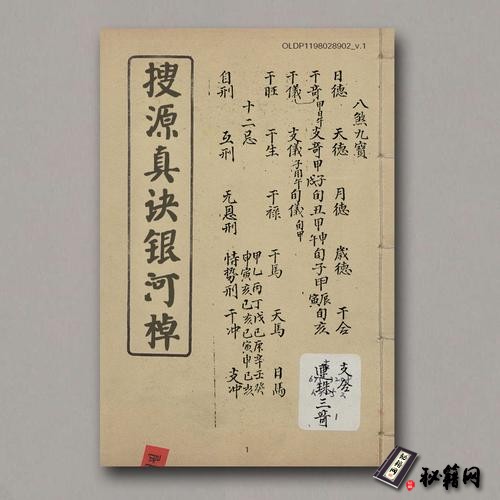 OLDP1198028902_v.1
搜源真诀银河棹
八煞九寳
日德 天德 月德 歲德 干合
干竒 甲日午 支竒甲子旬丑甲申旬子甲辰旬亥
干儀 支儀 子用午 旬儀 旬甲
干旺 干生 干禄 干馬 天馬 日馬
十二忌
甲乙丙丁戊己庚辛壬癸
申寅亥巳亥巳寅申巳亥
自刑 互刑 无恩刑 恃势刑 干冲 支冲
連珠三竒
1
秘籍网
秘籍网